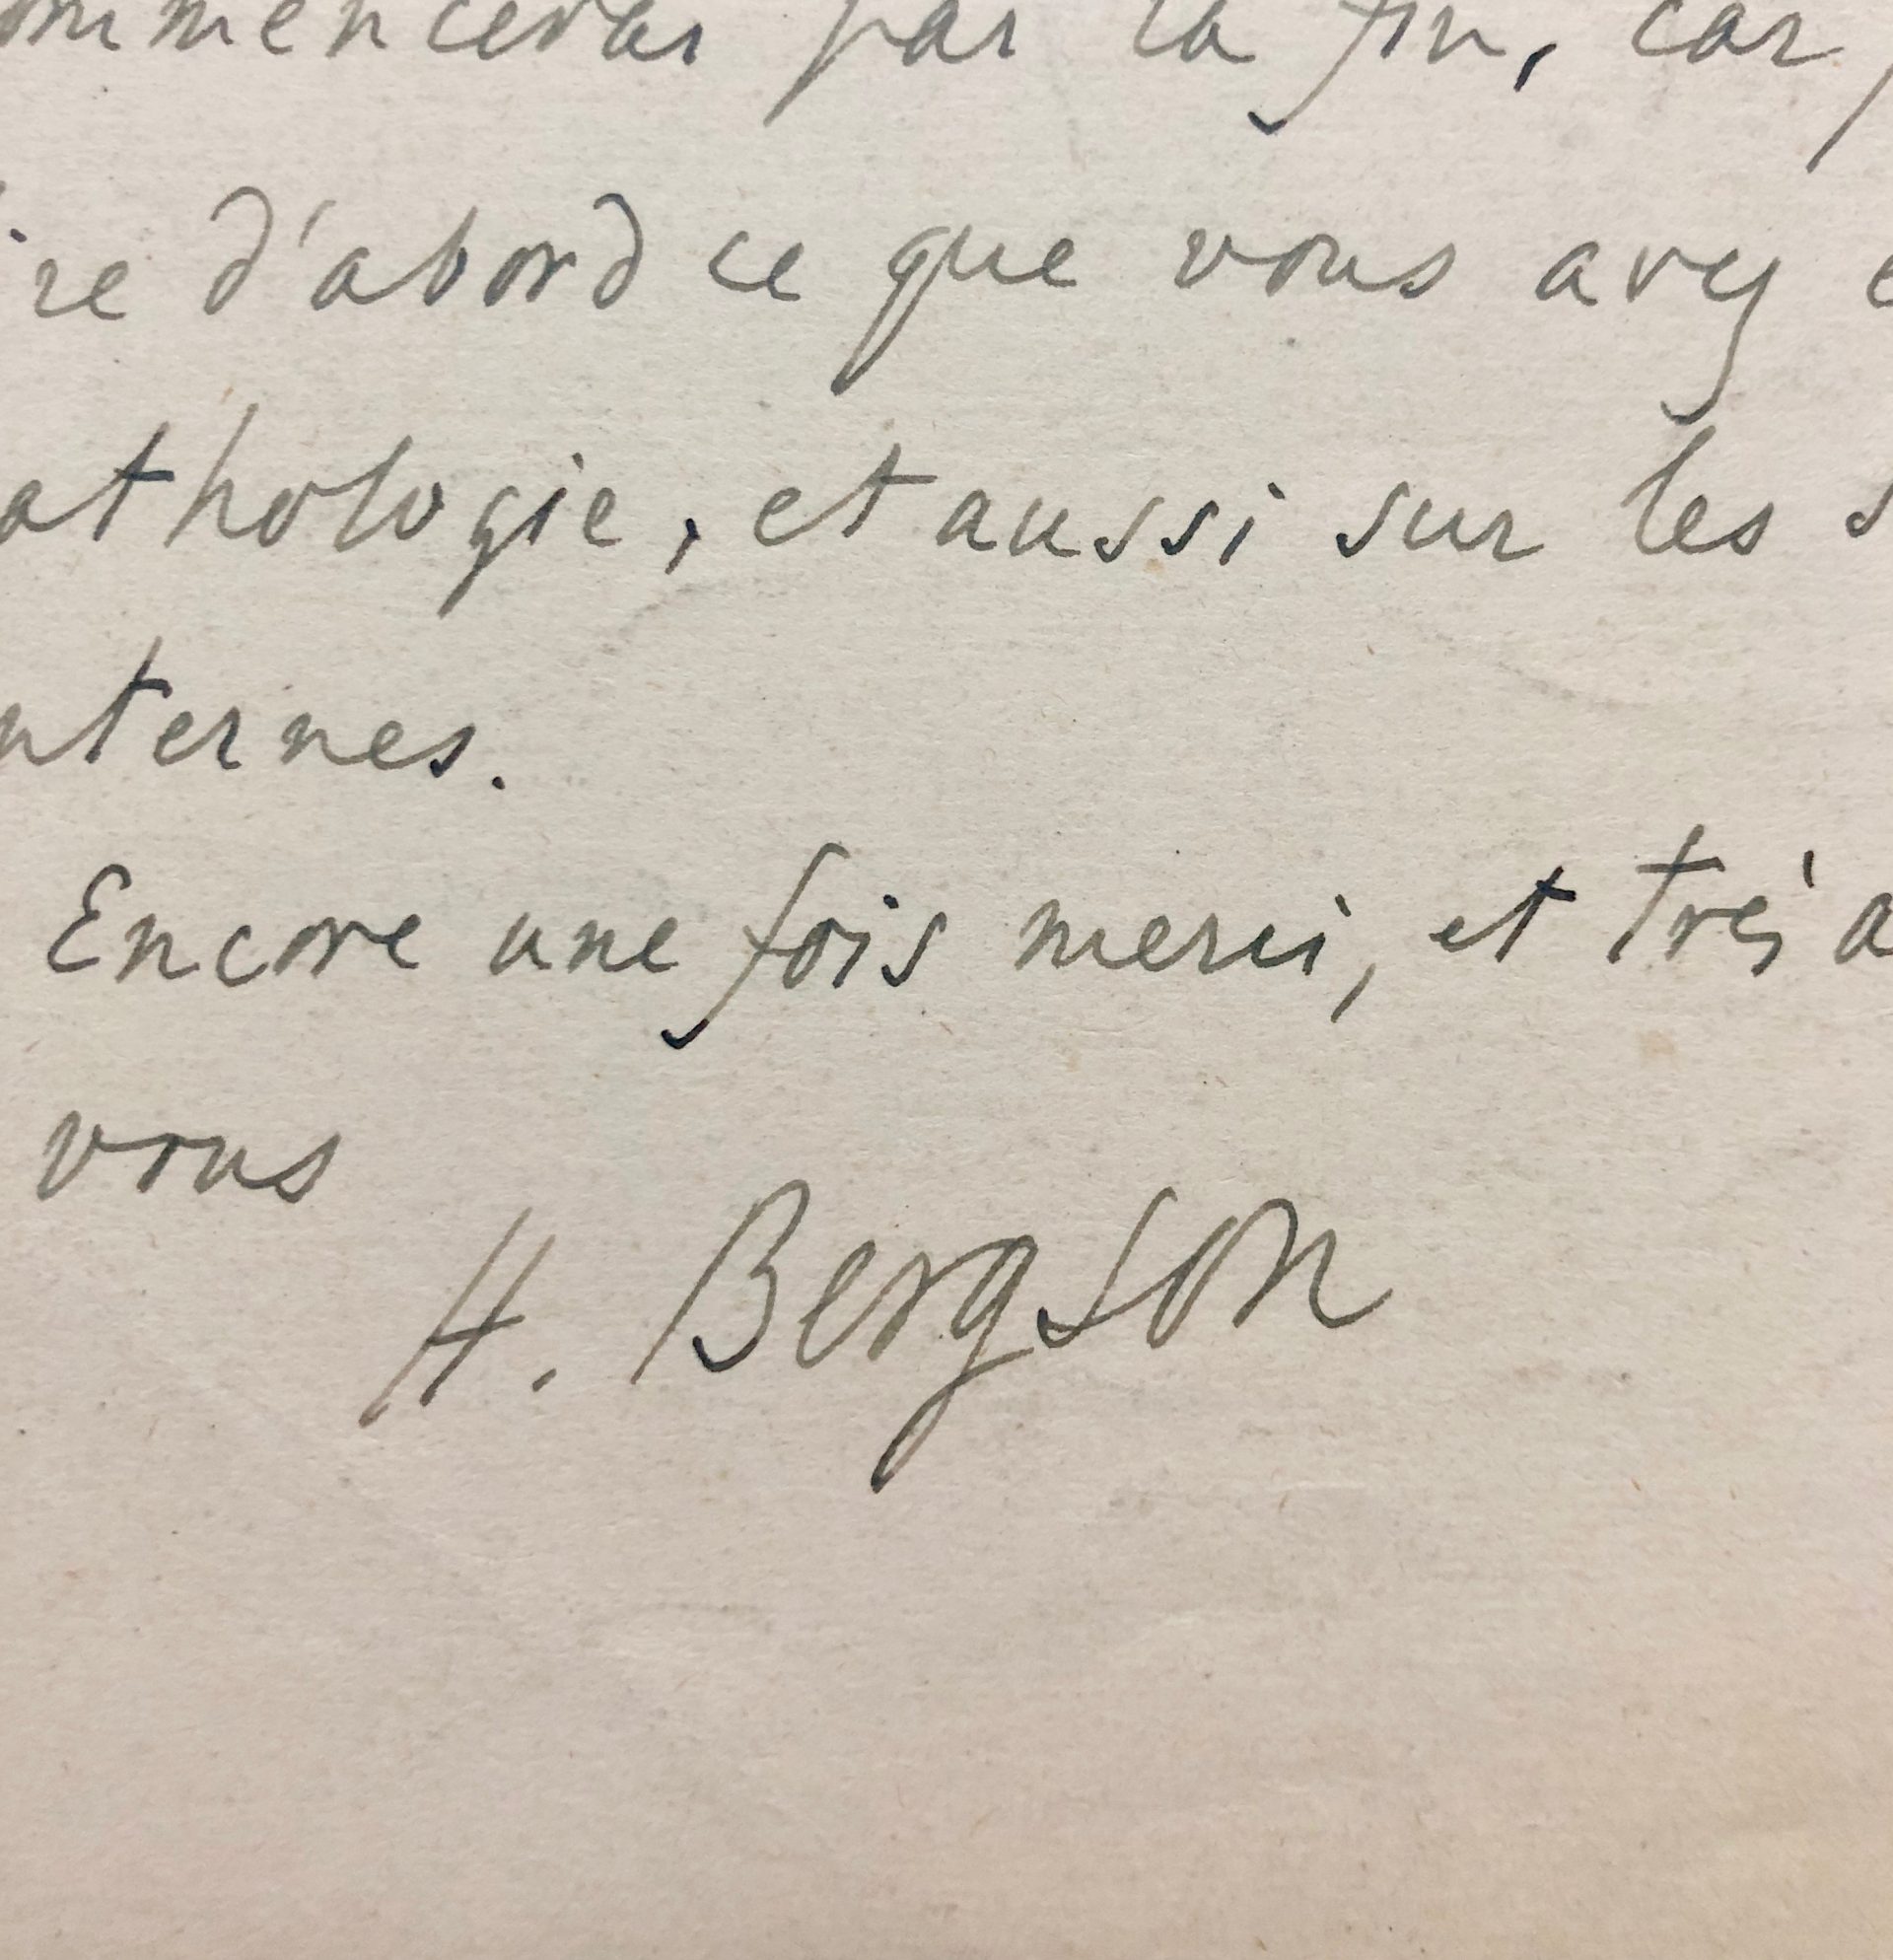 ommencerai par la fin, car
ire d'abord ce que vous avez
athologie, et aussi sur les s
nternes.
Encore une fois merci, et très a
vous
H. Bergson